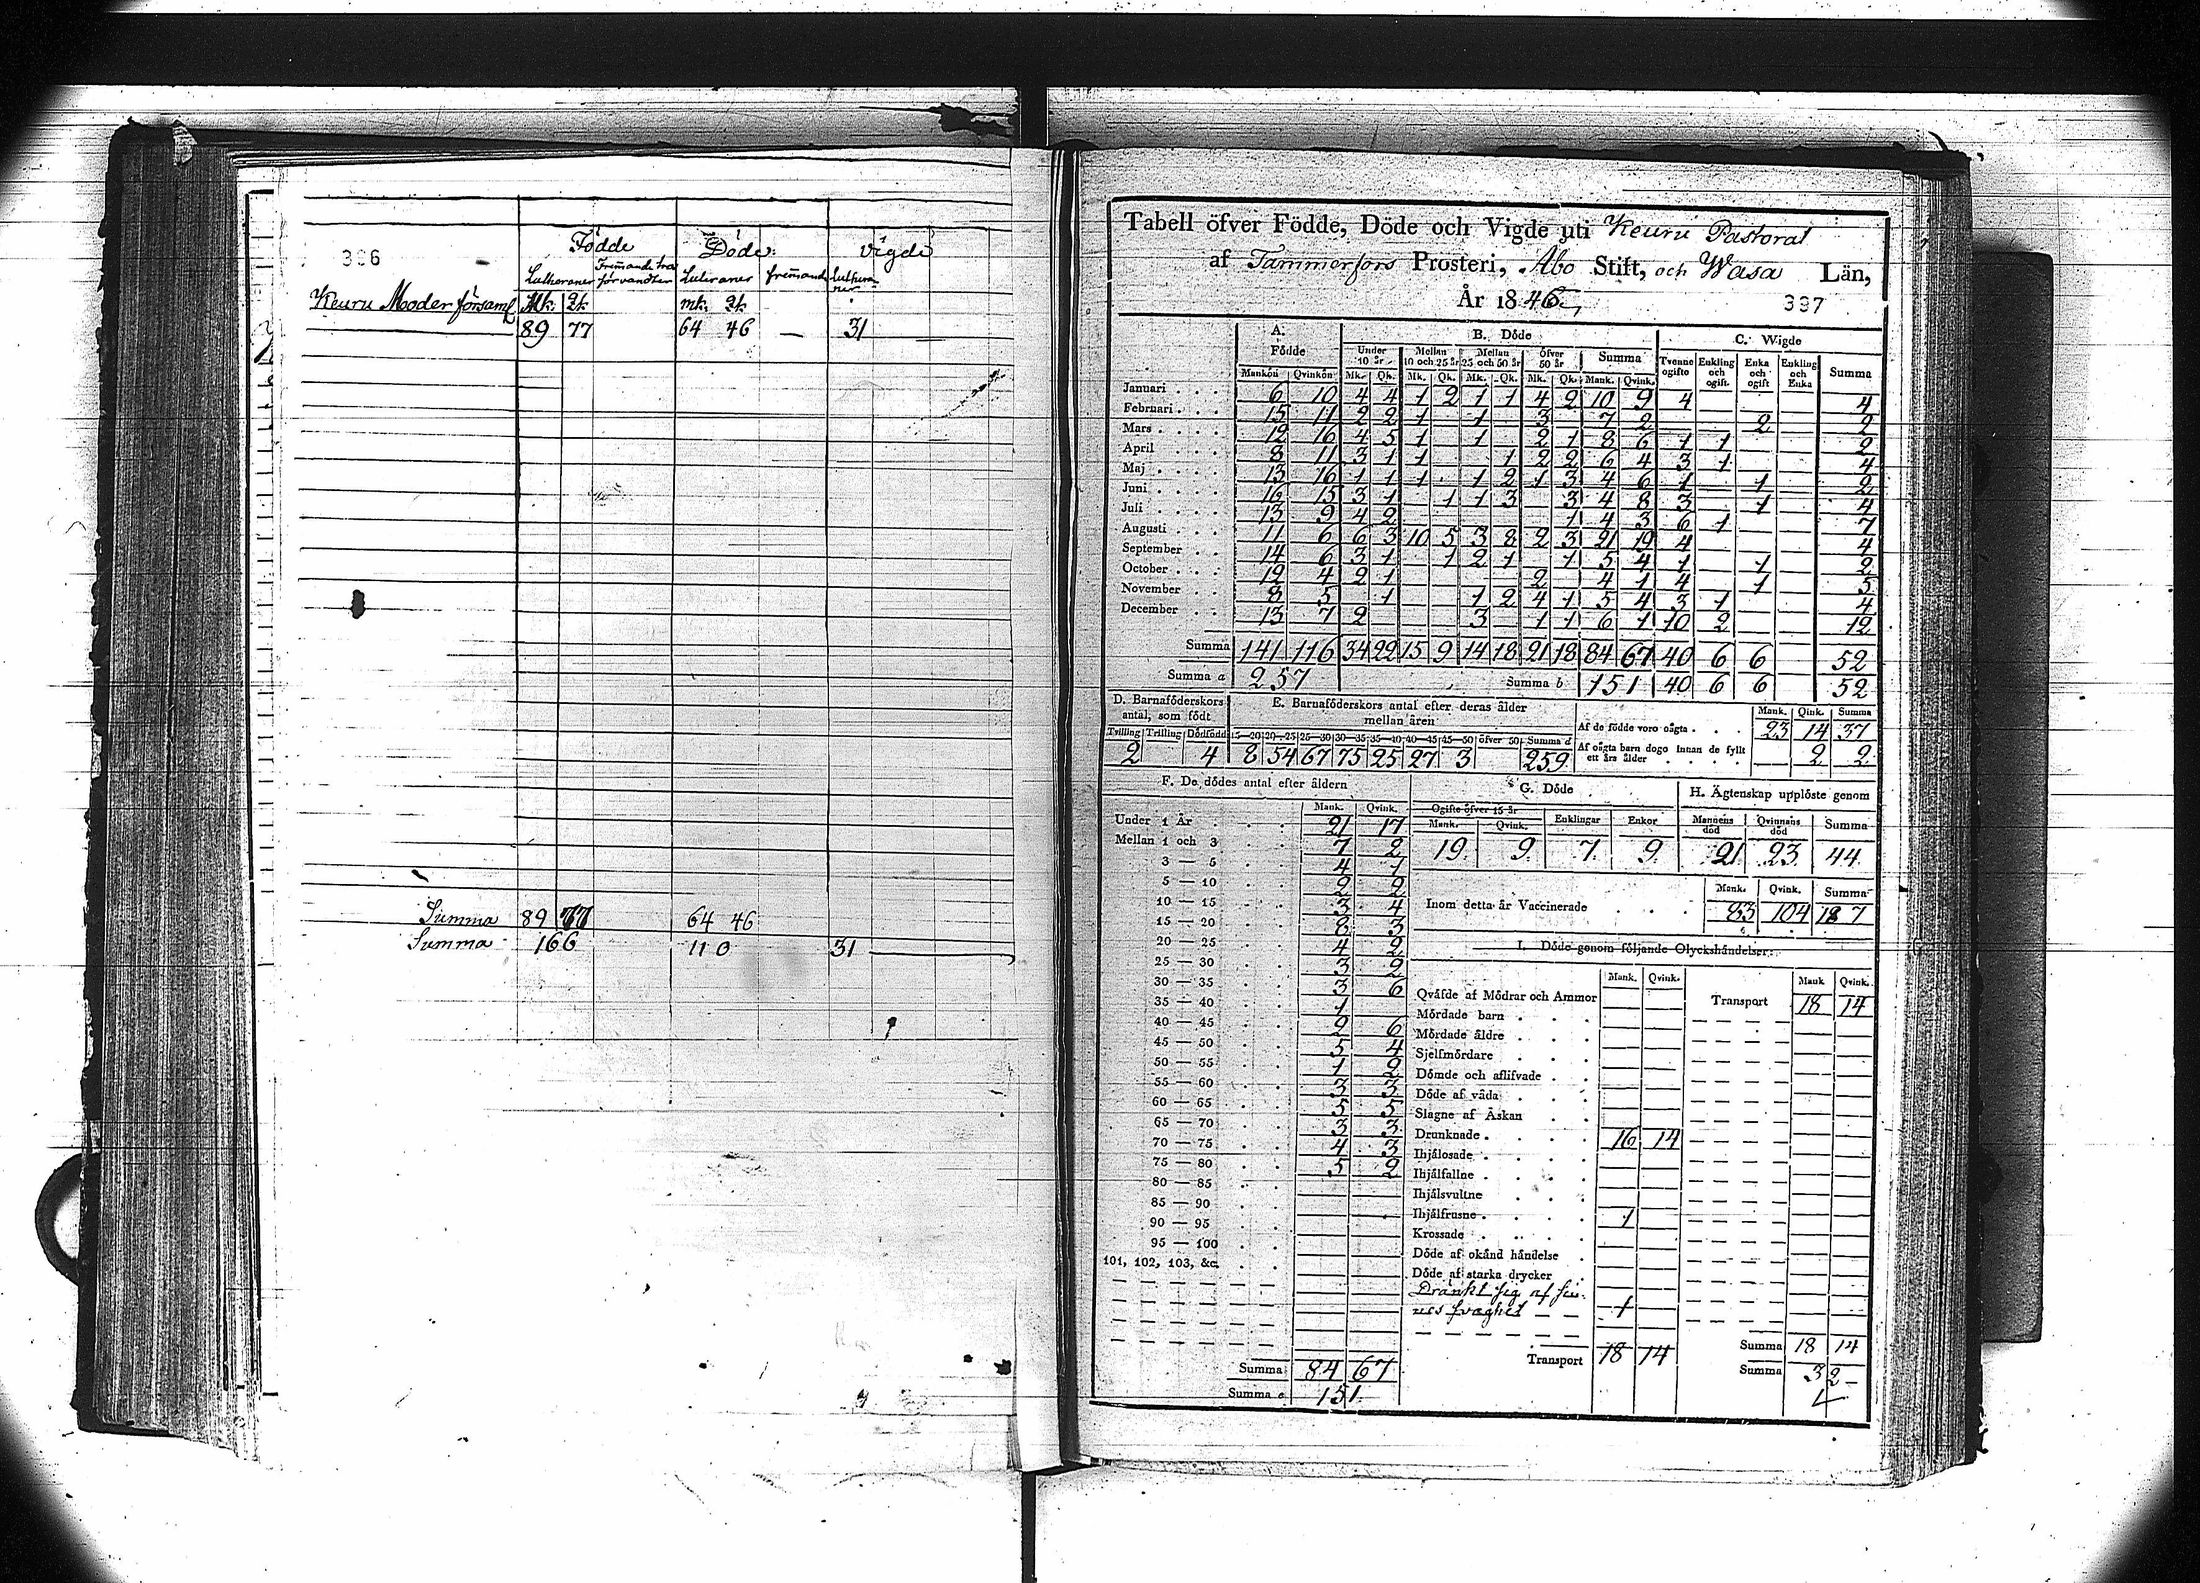 336
Födde Döde: Vigde
Lutheraner Fremande tros förvandter Luteraner fremande Lutheraner
Keuru Moder församl. Mk. Qk. mk. Qk.
89 77 64 46 — 31
Summa 89 77 64 46
Summa 166 110 31
Tabell öfver Födde, Döde och Vigde uti Keuru Pastorat
af Tammerfors Prosteri, Åbo Stift, och Wasa Län,
År 1846,
337
A. Födde B. Döde C. Wigde
Under 10 år Mellan 10 och 25 år Mellan 25 och 50 år öfver 50 år Summa Tvenne ogifte Enkling och ogift. Enka och ogift Enkling och Enka Summa
Mankön Qvinkön Mk. Qk. Mk. Qk. Mk. Qk. Mk. Qk. Mank. Qvink.
Januari 6 10 4 4 1 2 1 1 4 2 10 9 4 4
Februari 15 11 2 2 1 1 3 7 2 2 2
Mars 12 16 4 5 1 1 2 1 8 6 1 1 2
April 8 11 3 1 1 1 2 2 6 4 3 1 4
Maj 13 16 1 1 1 1 2 1 3 4 6 1 1 2
Juni 16 15 3 1 1 1 3 3 4 8 3 1 4
Juli 13 9 4 2 1 4 3 6 1 7
Augusti 11 6 6 3 10 5 3 8 2 3 21 19 4 4
September 14 6 3 1 1 2 1 1 5 4 1 1 2
October 12 4 2 1 2 4 1 4 1 5
November 8 5 1 1 2 4 1 5 4 3 1 4
December 13 7 2 3 1 1 6 1 10 2 12
Summa 141 116 34 22 15 9 14 18 21 18 84 67 40 6 6 52
Summa a 257 Summa b 151 40 6 6 52
D. Barnaföderskors antal, som födt
Tvilling Trilling Dödfödd
2 4
E. Barnaföderskors antal efter deras ålder mellan åren
15—20 20—25 25—30 30—35 35—40 40—45 45—50 öfver 50 Summa d
8 54 67 75 25 27 3 259
Mank. Qink. Summa
Af de födde voro oägta 23 14 37
Af oägta barn dogo innan de fyllt ett års ålder 2 2
F. De dödes antal efter åldern
Mank. Qvink.
Under 1 År 21 17
Mellan 1 och 3 7 2
3 — 5 4 1
5 — 10 2 2
10 — 15 3 4
15 — 20 8 3
20 — 25 4 2
25 — 30 3 2
30 — 35 3 6
35 — 40 1
40 — 45 2 6
45 — 50 5 4
50 — 55 1 2
55 — 60 3 3
60 — 65 5 5
65 — 70 3 3
70 — 75 4 3
75 — 80 5 2
80 — 85
85 — 90
90 — 95
95 — 100
101, 102, 103, &c.
Summa 84 67
Summa e 151
G. Döde
Ogifte öfver 15 år Enklingar Enkor
Mank. Qvink.
19. 9. 7. 9.
H. Ägtenskap upplöste genom
Mannens död Qvinnans död Summa
21 23 44
Mank. Qvink. Summa
Inom detta år Vaccinerade 83 104 187
I. Döde genom följande Olyckshändelser:
Mank. Qvink. Mank Qvink.
Qväfde af Mödrar och Ammor Transport 18 14
Mördade barn
Mördade äldre
Sjelfmördare
Dömde och aflifvade
Döde af våda
Slagne af Åskan
Drunknade 16 14
Ihjälosade
Ihjälfallne
Ihjälsvultne
Ihjälfrusne 1
Krossade
Döde af okänd händelse
Döde af starka drycker
Dränkt sig af sin-
nes svaghet 1
Transport 18 14
Summa 18 14
Summa 32